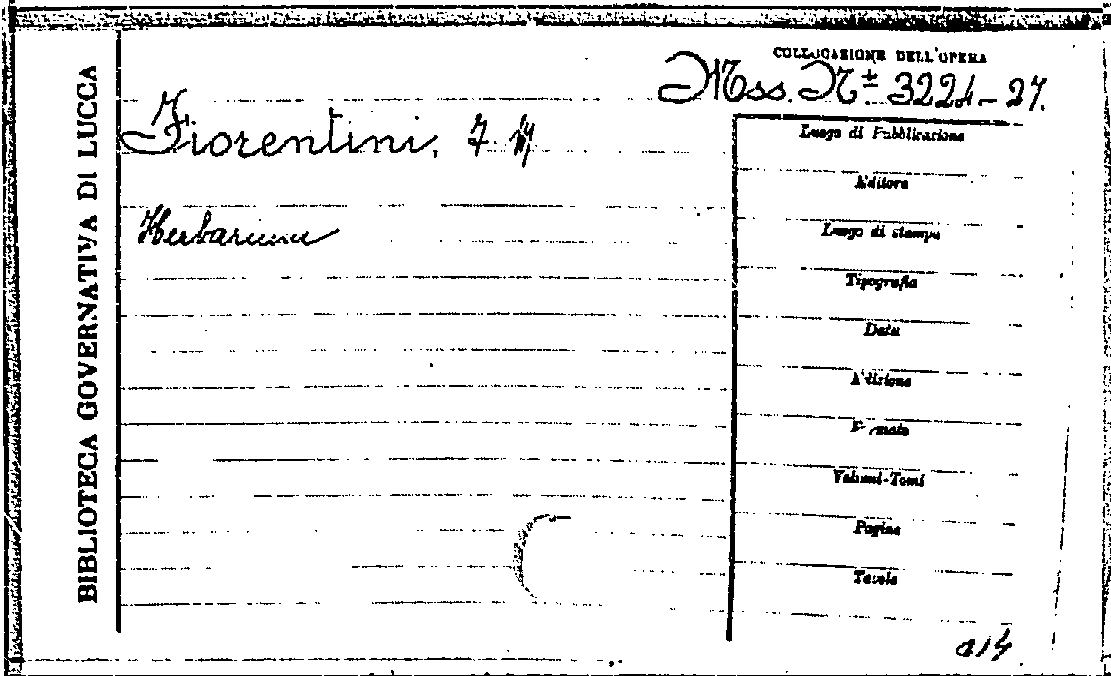 BIBLIOTECA GOVERNATIVA DI LUCCA
COLLOCAZIONE DELL'OPERA
Mss. Nº 3224-27.
Fiorentini, F. M.
Herbarium
Luogo di Pubblicazione
Editore
Luogo di stampa
Tipografia
Data
Edizione
Formato
Volumi-Tomi
Pagine
Tavole